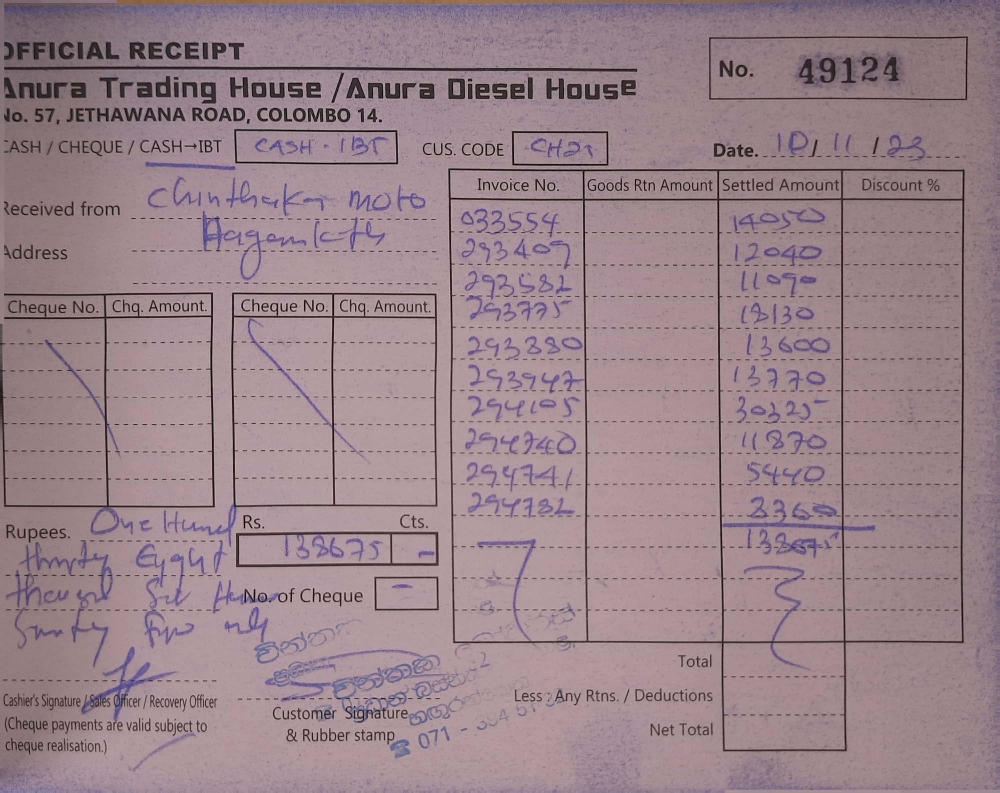 OFFICIAL RECEIPT
No. 49124
Anura Trading House / Anura Diesel House
No. 57, JETHAWANA ROAD, COLOMBO 14.
CASH / CHEQUE / CASH→IBT CASH - IBT CUS. CODE Date. 10/ 11 / 23
Received from Chinthaka moto
Address
Invoice No. Goods Rtn Amount Settled Amount Discount %
033554 14050
293409 12040
293582 11090
293775 18130
293880 13600
293947 13770
294105 30325
294740 11870
294741 5440
294782 8360
138675
Cheque No. Chq. Amount. Cheque No. Chq. Amount.
Rupees. One Hund
thirty Eight
thousand Six Hun
Seventy five only
Rs. Cts.
138675 -
No. of Cheque -
Total
Less : Any Rtns. / Deductions
Net Total
Cashier's Signature / Sales Officer / Recovery Officer
(Cheque payments are valid subject to
cheque realisation.)
Customer Signature
& Rubber stamp
චින්තක
071 -